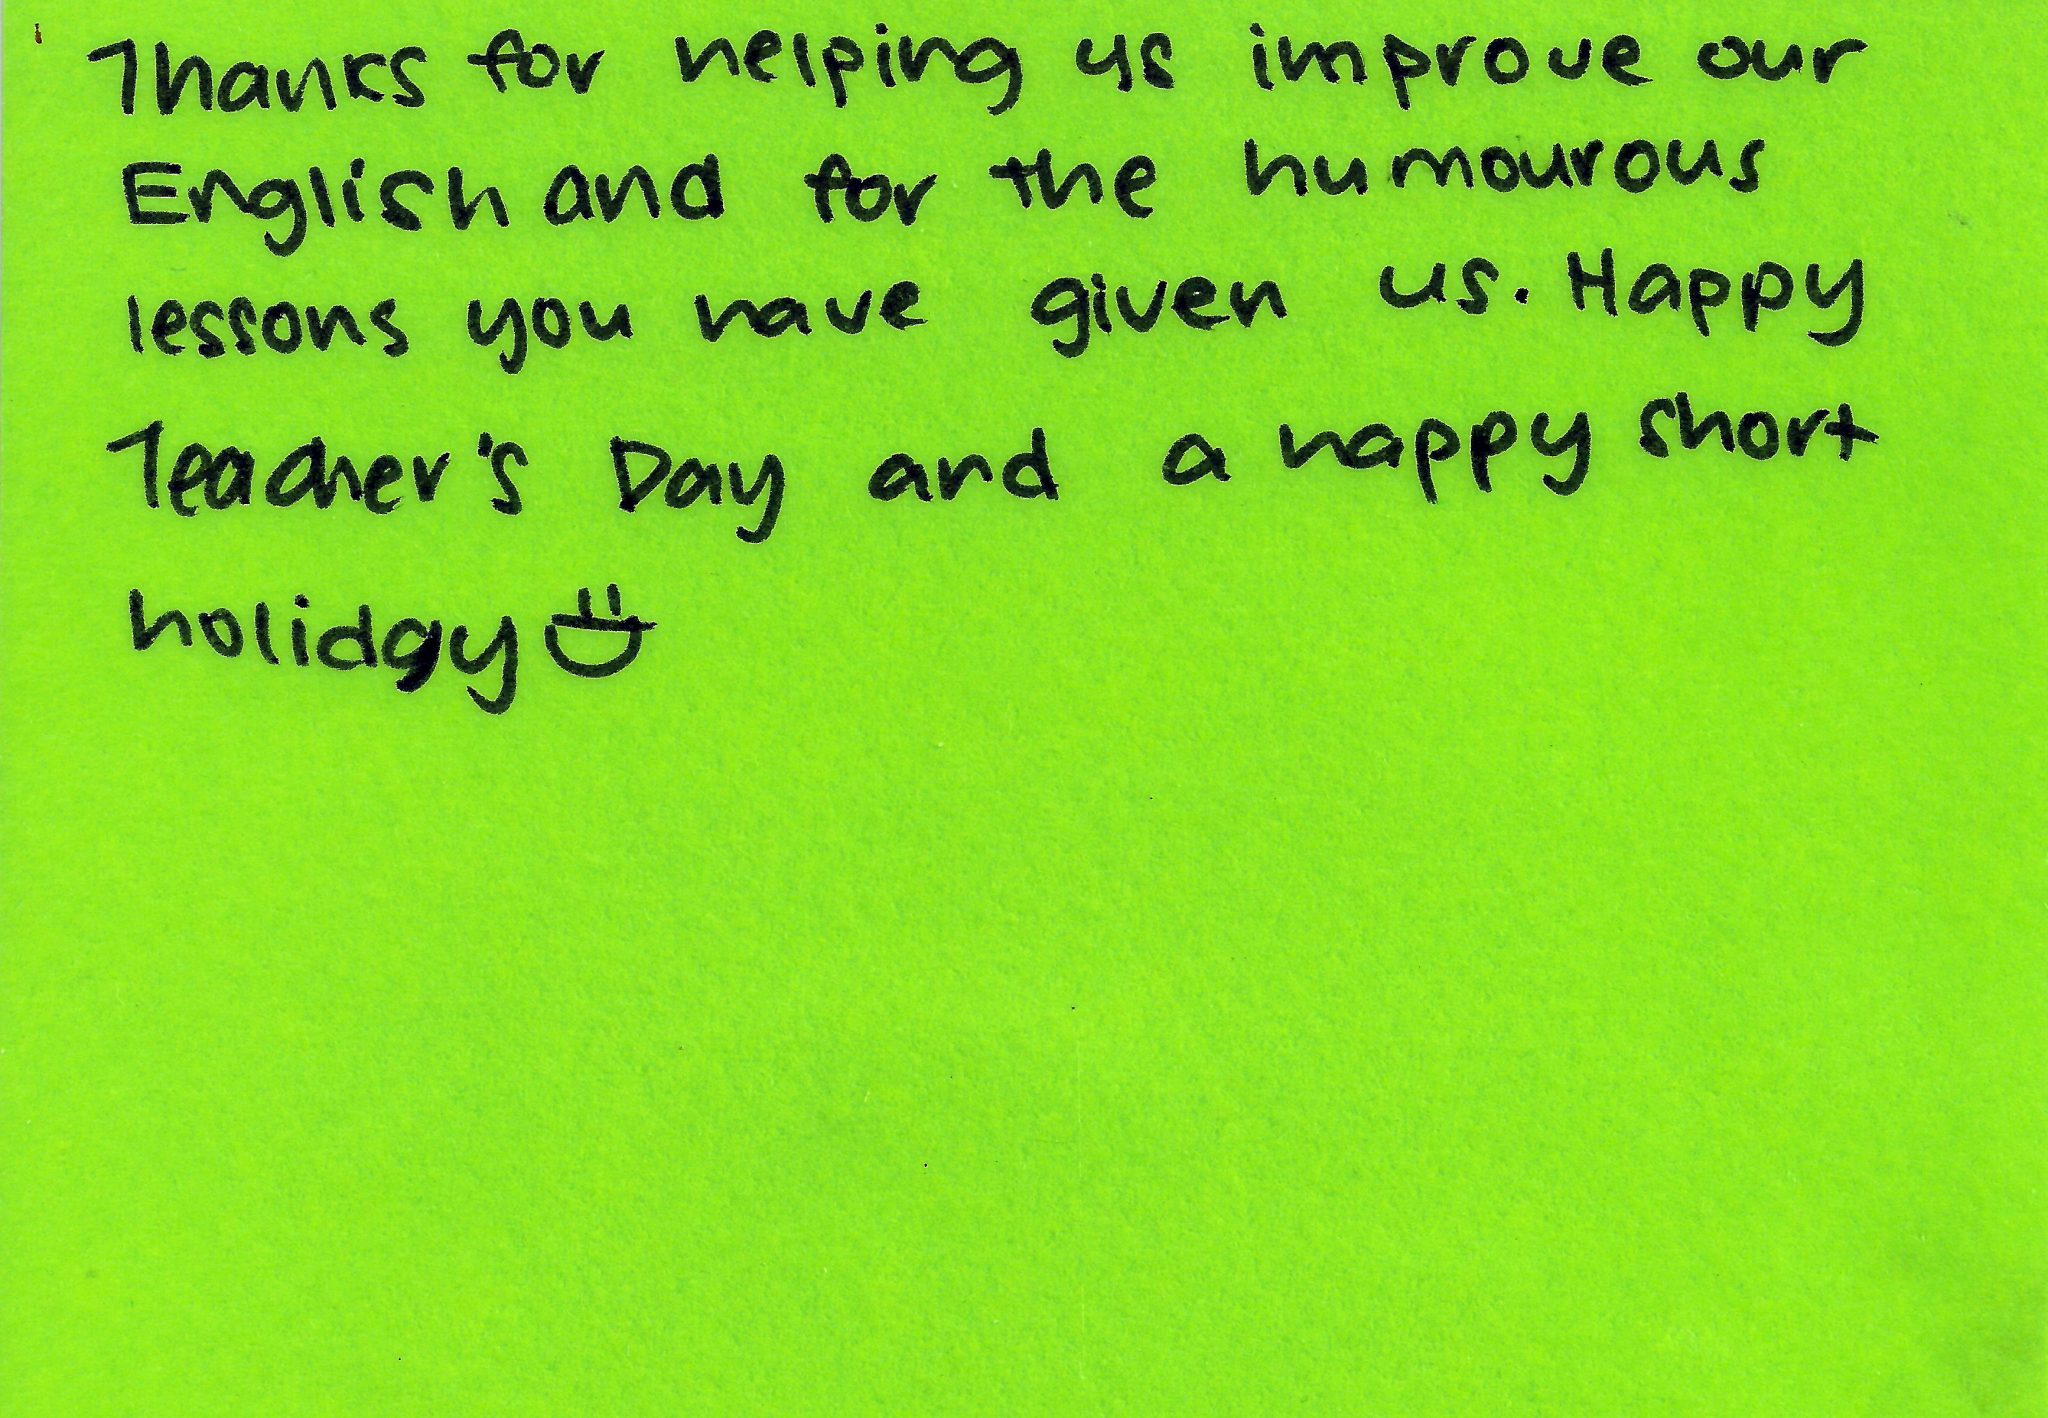 Thanks for helping us improve our
English and for the humourous
lessons you have given us. Happy
Teacher's Day and a happy short
holiday